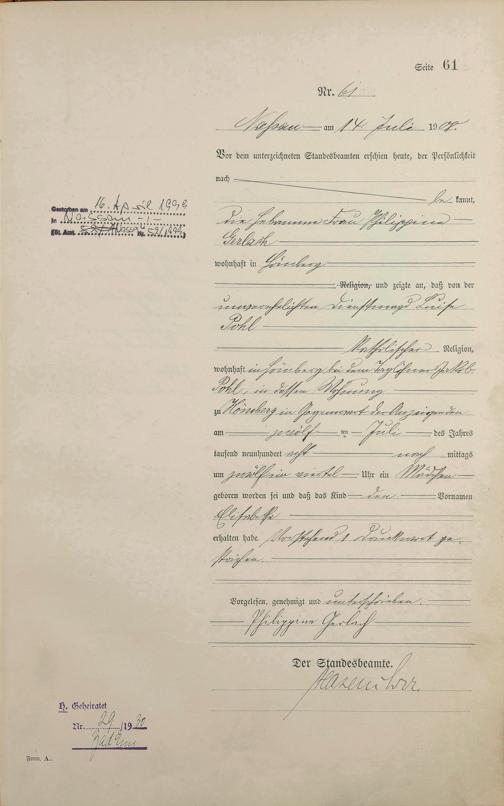 Seite 61
Nr. 61
Nassau am 14 Juli 1908.
Vor dem unterzeichneten Standesbeamten erschien heute, der Persönlichkeit
nach
be kannt,
die Hebamme Frau Philippine
Gerlach
wohnhaft in Hömberg
Religion, und zeigte an, daß von der
unverehelichten Dienstmagd Luise
Pohl
katholischer Religion,
wohnhaft in Hömberg bei dem Taglöhner Jakob
Pohl, in dessen Wohnung
zu Hömberg in Gegenwart der Anzeigenden
am zwölf ten Juli des Jahres
tausend neunhundert acht nach mittags
um zwölf ein viertel Uhr ein Mädchen
geboren worden sei und daß das Kind den Vornamen
erhalten habe. Vorstehend 1 Druckwort ge-
strichen.
Vorgelesen, genehmigt und unterschrieben.
Philippine Gerlach
Der Standesbeamte.
Gestorben am 16. April 1998
in Nassau
(St. Amt Nr.
H. Geheiratet
Nr. 29 /19 30
Form. A.